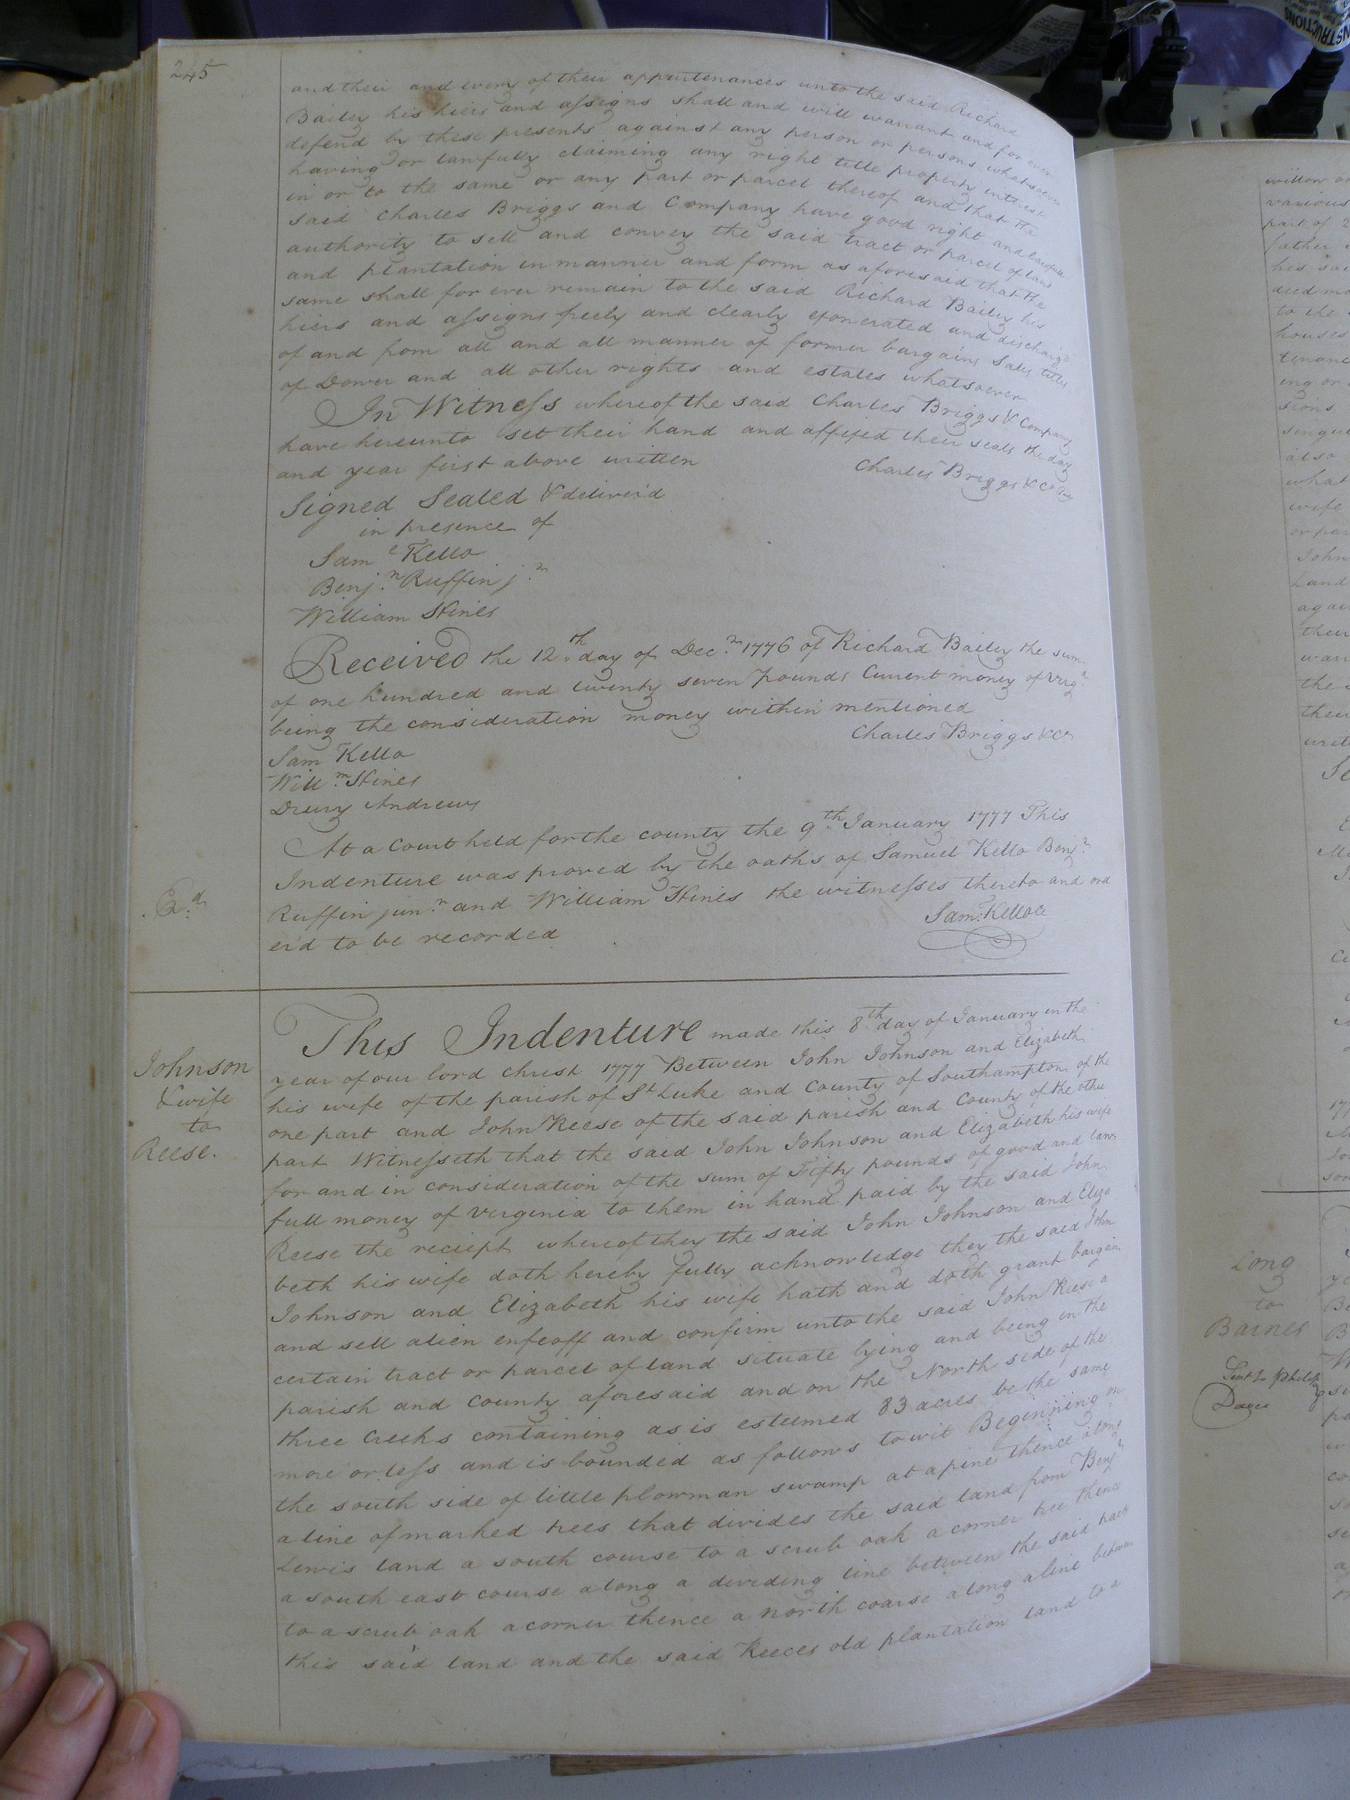 245
and their and every of their appurtenances unto the said Richard
Bailey his hiers and assigns shall and will warrant and for ever
defend by these presents against any person or persons whatsoever
having or lawfully claiming any right title property interest
in or to the same or any part or parcel thereof and that the
said Charles Briggs and Company have good right and lawfull
authority to sell and convey the said tract or parcel of land
and plantation in manner and form as aforesaid that the
same shall for ever remain to the said Richard Bailey his
hiers and assigns freely and clearly exonerated and discharged
of and from all and all manner of former bargains Sales titles
of Dower and all other rights and estates whatsoever
In Witness whereof the said Charles Briggs & Company
have hereunto set their hand and affixed their seals the day
and year first above written
Charles Briggs & Co
Signed Sealed & deliver'd
in presence of
Sam.l Kello
Benj.n Ruffin j.n
William Hines
Received the 12.th day of Dec.r 1776 of Richard Bailey the sum
of one hundred and twenty seven pounds Current money of Virg.a
being the consideration money within mentioned
Charles Briggs & Co
Sam Kello
Will.m Hines
Drury Andrews
At a Court held for the county the 9.th January 1777 This
Indenture was proved by the oaths of Samuel Kello Benj.n
Ruffin jun.r and William Hines the witnesses thereto and ord
er'd to be recorded
Sam. Kello
Ex.d
Johnson
& wife
to
Reese.
This Indenture made this 8.th day of January in the
year of our lord Christ 1777 Between John Johnson and Elizabeth
his wife of the parish of St Luke and County of Southampton of the
one part and John Reese of the said parish and County of the other
part Witnesseth that the said John Johnson and Elizabeth his wife
for and in consideration of the sum of Fifty pounds of good and law
full money of Virginia to them in hand paid by the said John
Reese the reciept whereof they the said John Johnson and Eliza
beth his wife doth hereby fully acknowledge they the said John
Johnson and Elizabeth his wife hath and doth grant bargain
and sell alien enfeoff and confirm unto the said John Reese a
certain tract or parcel of land situate lying and being in the
parish and County aforesaid and on the North side of the
three Creeks containing as is esteemed 83 acres be the same
more or less and is bounded as follows to wit Beginning on
the south side of little plowman swamp at a pine thence along
a line of marked trees that divides the said land from Benj.n
Lewis land a south course to a scrub oak a corner tree thence
a south east course along a dividing line between the said
to a scrub oak a corner thence a north coarse along a line between
this said land and the said Reeces old plantation land to a
various
part of
father
his said
to the
houses
ing or
sions
also
what
wife
John
Land
again
their
the
their
Long
to
Barnes